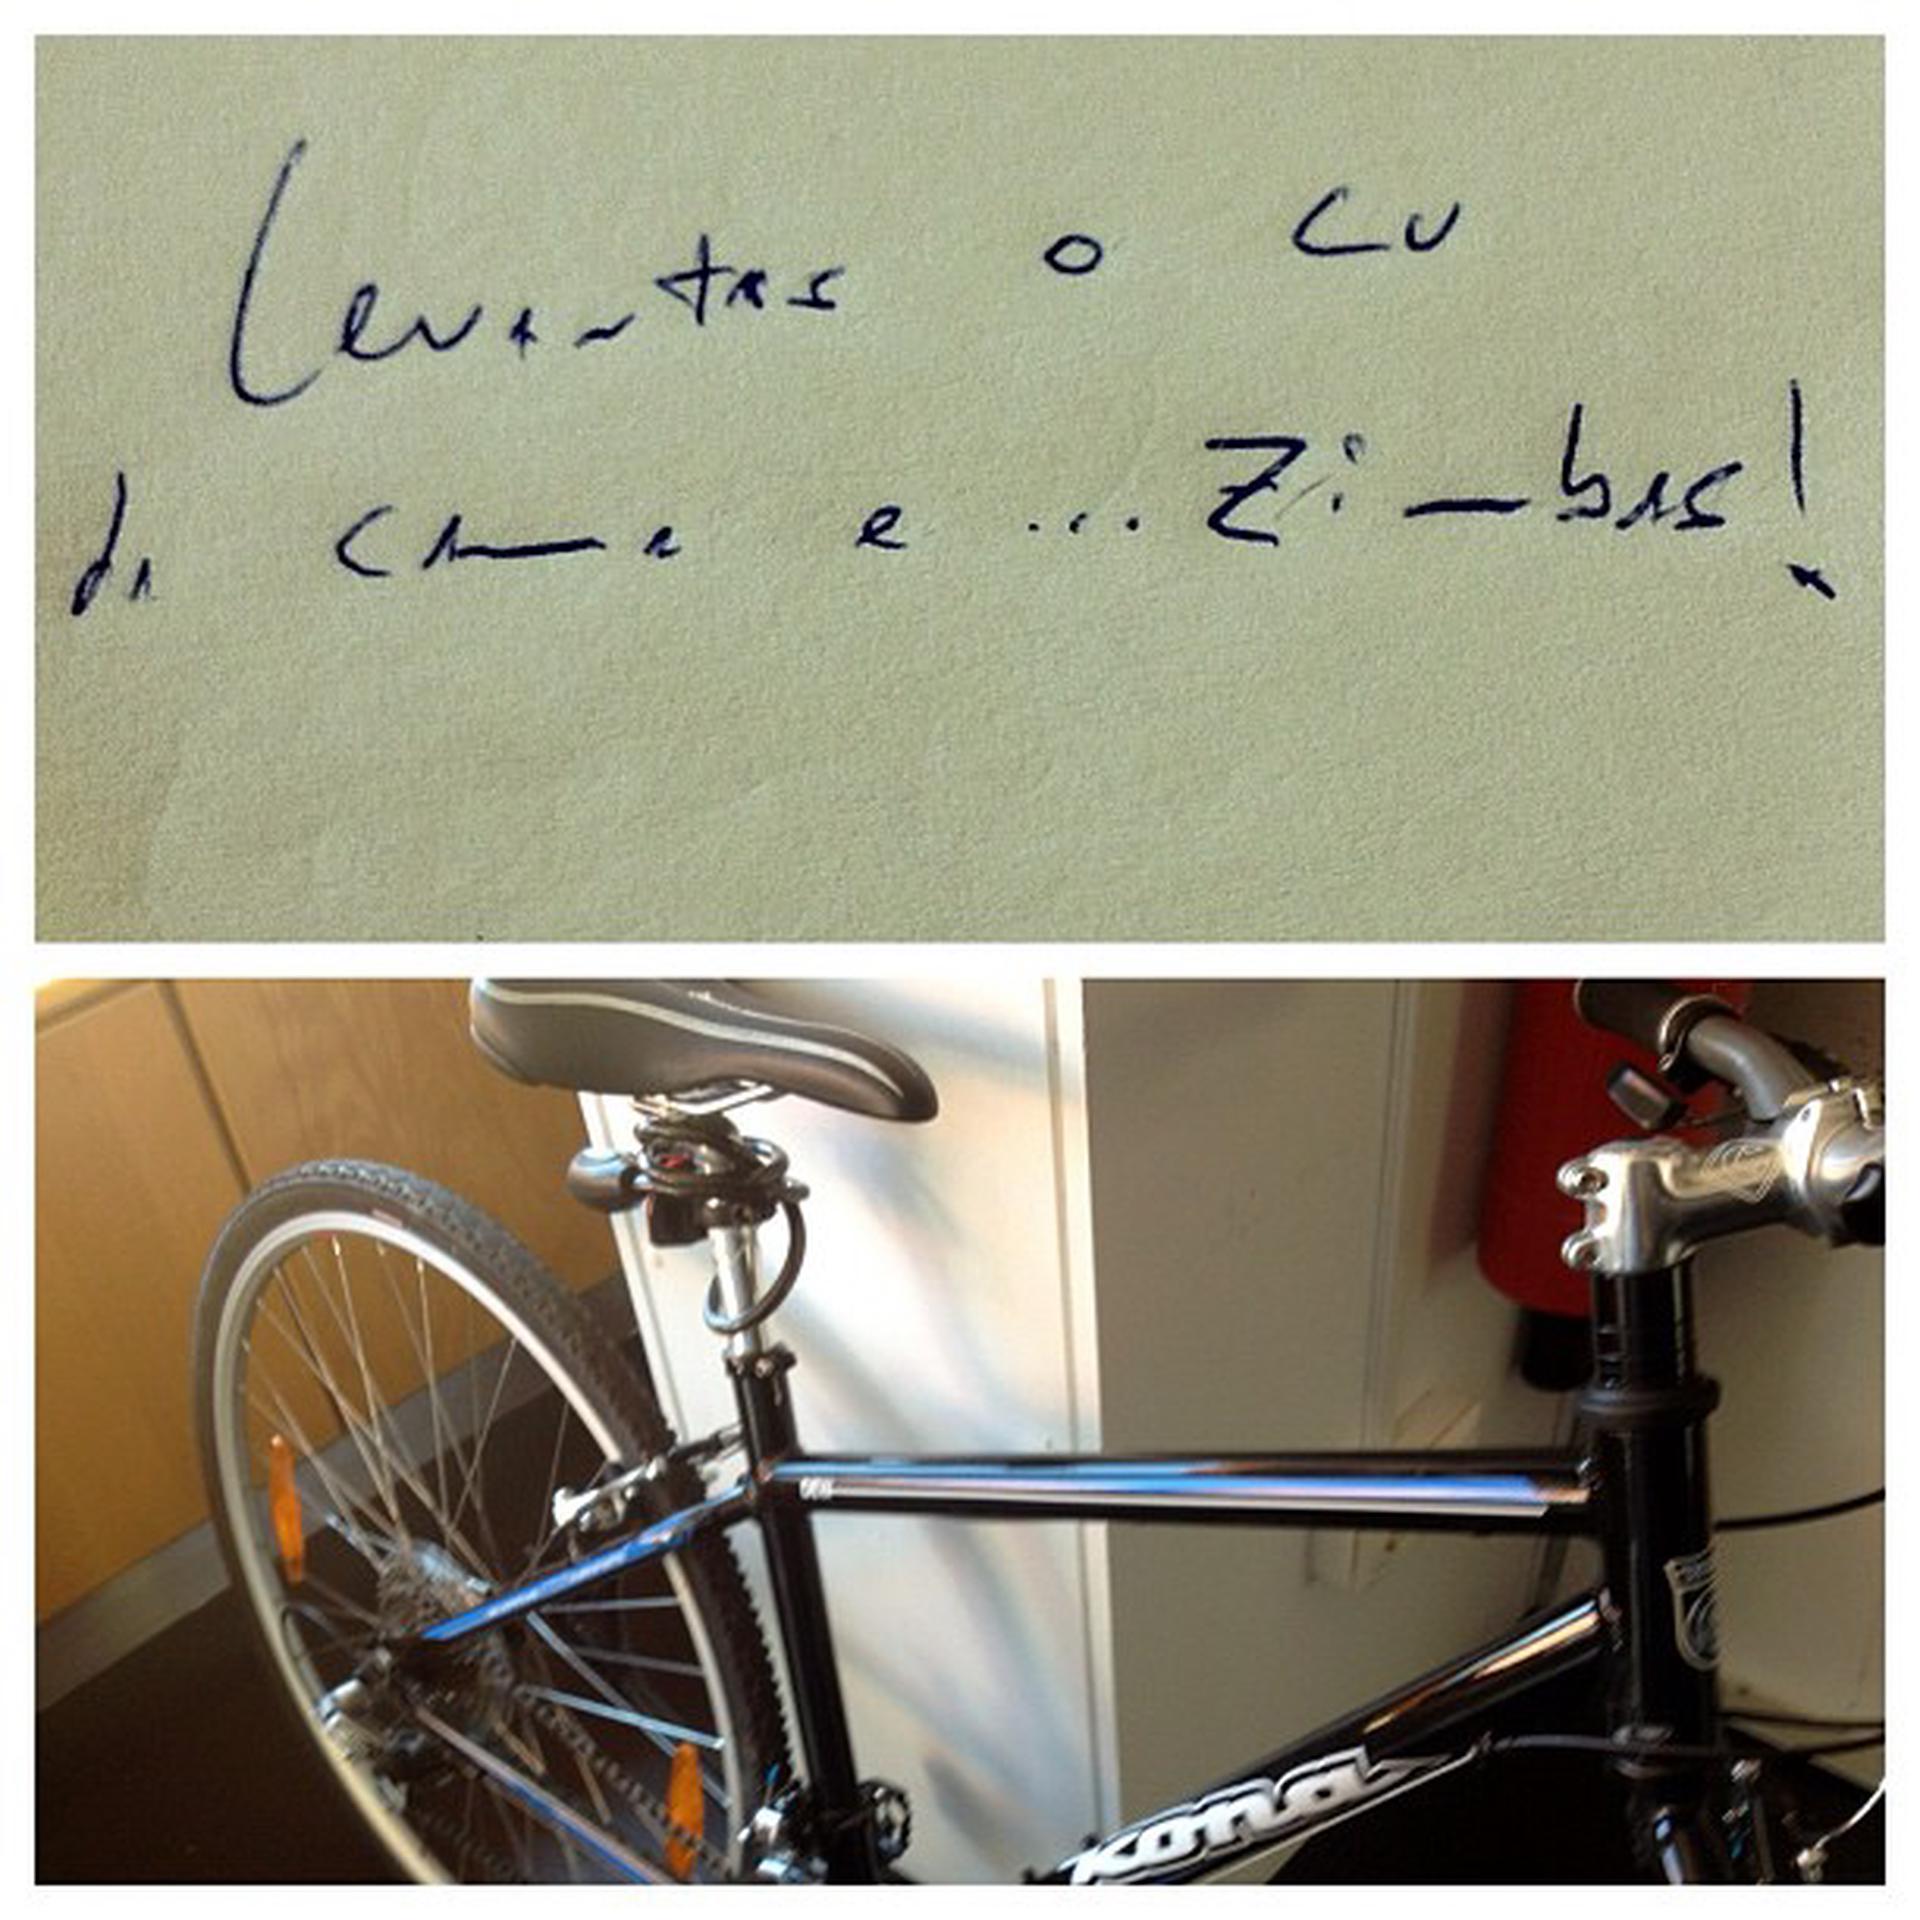 Levantas o cu
da cama e ... Zimbas!
kona